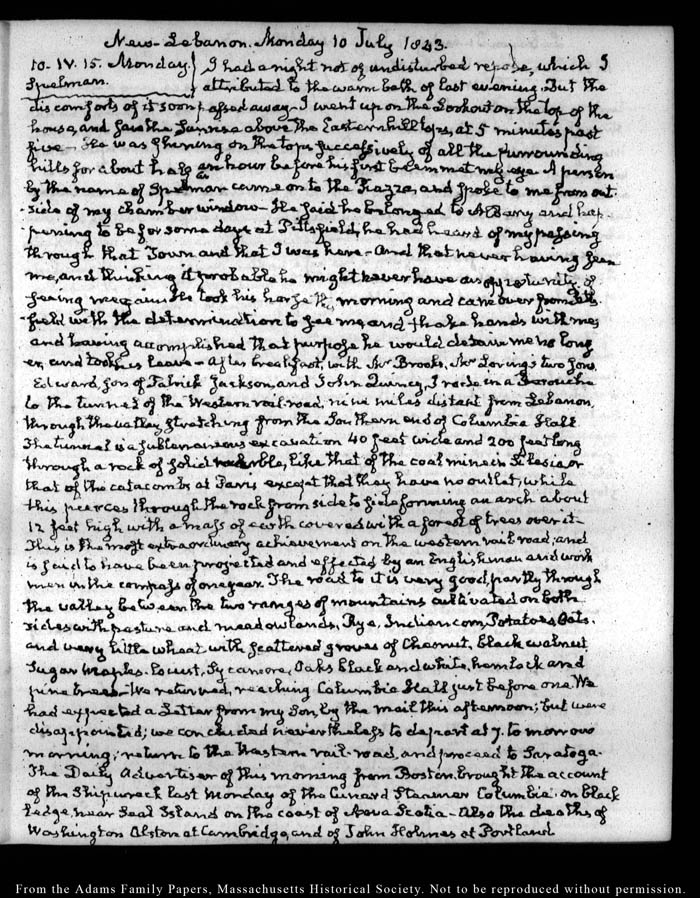 New-Lebanon. Monday 10 July 1843.
10. IV. 15. Monday. I had a night not of undisturbed repose, which I
Spelman. attributed to the warm bath of last evening. But the
discomforts of it soon passed away. I went up on the Lookout on the top of the
house, and saw the Sunrise above the Eastern hill tops, at 5 minutes past
five— He was shining on the tops successively of all the surrounding
hills for about half an hour before his first beam met my eye. A person
by the name of Spelman came on to the Piazza, and spoke to me from out-
side of my chamber window— He said he belonged to Albany and hap-
pening to be for some days at Pittsfield, he had heard of my passing
through that Town and that I was here— And that never having seen
me, and thinking it probable he might never have an opportunity of
seeing me again He took his horse this morning and came over from Pitts-
field with the determination to see me and shake hands with me;
and having accomplished that purpose he would detain me no long
er, and took his leave— After breakfast, with Mr Brooks, Mr Loring's two Sons,
Edward, son of Patrick Jackson, and John Quincy, I rode in a Barouche
to the tunnel of the Western rail-road, nine miles distant from Lebanon,
through the valley stretching from the Southern end of Columbia Hall
The tunnel is a subterraneous excavation 40 feet wide and 200 feet long
through a rock of solid marble, like that of the coal mine in Silesia or
that of the catacombs at Paris except that they have no outlet, while
this pierces through the rock from side to side forming an arch about
12 feet high with a mass of earth covered with a forest of trees over it—
This is the most extraordinary achievement on the western rail road, and
is said to have been projected and effected by an Englishman and work
men in the compass of one year. The road to it is very good, partly through
the valley between the two ranges of mountains cultivated on both
sides with pasture and meadowlands, Rye, Indian corn, Potatoes, Oats.
and very little wheat with scattered groves of Chesnut, black walnut
Sugar Maples, Locust, Sycamore, Oaks black and white, hemlock and
pine trees— We returned, reaching Columbia Hall just before one. We
had expected a Letter from my Son, by the mail this afternoon; but were
disappointed; we concluded nevertheless to depart at 7. to morrow
morning; return to the Western rail-road, and proceed to Saratoga.
The Daily Advertiser of this morning from Boston, brought the account
of the Shipwreck last Monday of the Cunard Steamer Columbia on black
ledge, near Seal Island on the coast of Nova Scotia— Also the deaths of
Washington Alston at Cambridge, and of John Holmes at Portland
From the Adams Family Papers, Massachusetts Historical Society. Not to be reproduced without permission.